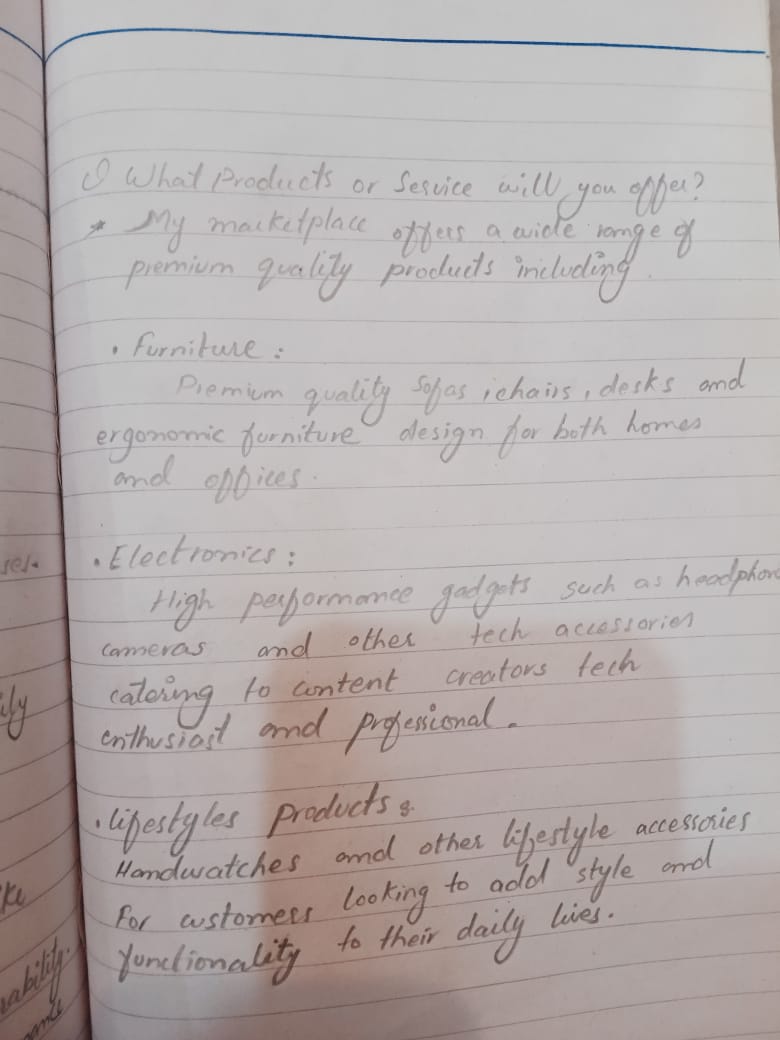 What Products or Service will you offer?
* My marketplace offers a wide range of
premium quality products including.
• Furniture :
Premium quality Sofas, chairs, desks and
ergonomic furniture design for both homes
and offices.
• Electronics :
High performance gadgets such as headphon
cameras and other tech accessories
catering to content creators tech
enthusiast and professional.
• lifestyles products :
Handwatches and other lifestyle accessories
For customers looking to add style and
functionality to their daily lives.